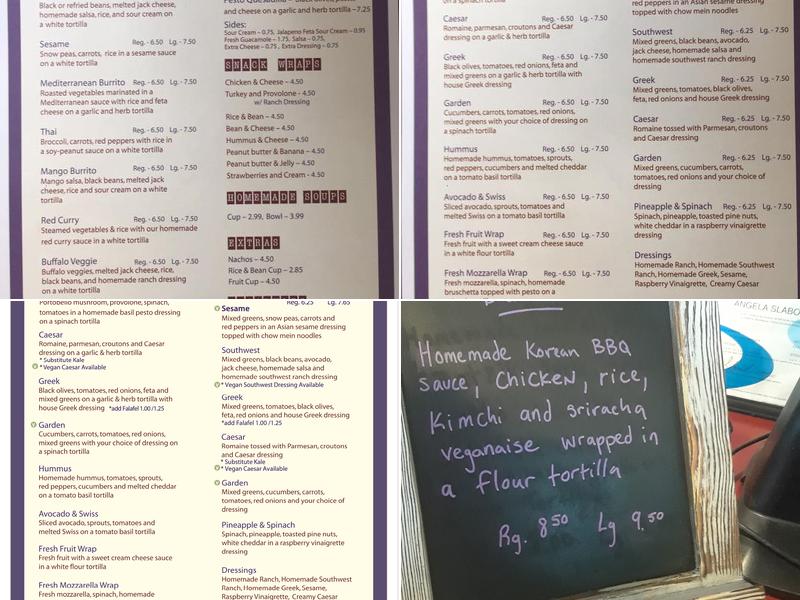 Black or refried beans, melted jack cheese,
homemade salsa, rice, and sour cream on
a white tortilla
Sesame Reg. - 6.50 Lg. - 7.50
Snow peas, carrots, rice in a sesame sauce
on a white tortilla
Mediterranean Burrito Reg. - 6.50 Lg. - 7.50
Roasted vegetables marinated in a
Mediterranean sauce with rice and feta
cheese on a garlic & herb tortilla
Thai Reg. - 6.50 Lg. - 7.50
Broccoli, carrots, red peppers with rice in
a soy-peanut sauce on a white tortilla
Mango Burrito Reg. - 6.50 Lg. - 7.50
Mango salsa, black beans, melted jack
cheese, rice and sour cream on a white
tortilla
Red Curry Reg. - 6.50 Lg. - 7.50
Steamed vegetables & rice with our homemade
red curry sauce in a white tortilla
Buffalo Veggie Reg. - 6.50 Lg. - 7.50
Buffalo veggies, melted jack cheese, rice,
black beans, and homemade ranch dressing
on a white tortilla
and cheese on a garlic and herb tortilla – 7.25
Sides:
Sour Cream – 0.75, Jalapeno Feta Sour Cream – 0.95
Fresh Guacamole – 1.75, Salsa – 0.75,
Extra Cheese – 0.75, Extra Dressing – 0.75
SNACK WRAPS
Chicken & Cheese – 4.50
Turkey and Provolone - 4.50
w/ Ranch Dressing
Rice & Bean – 4.50
Bean & Cheese – 4.50
Hummus & Cheese – 4.50
Peanut butter & Banana – 4.50
Peanut butter & Jelly – 4.50
Strawberries and Cream - 4.50
HOMEMADE SOUPS
Cup – 2.99, Bowl – 3.99
EXTRAS
Nachos – 4.50
Rice & Bean Cup – 2.85
Fruit Cup – 4.50
on a spinach tortilla
Caesar Reg. - 6.50 Lg. - 7.50
Romaine, parmesan, croutons and Caesar
dressing on a garlic & herb tortilla
Greek Reg. - 6.50 Lg. - 7.50
Black olives, tomatoes, red onions, feta and
mixed greens on a garlic & herb tortilla with
house Greek dressing
Garden Reg. - 6.50 Lg. - 7.50
Cucumbers, carrots, tomatoes, red onions,
mixed greens with your choice of dressing on
a spinach tortilla
Hummus Reg. - 6.50 Lg. - 7.50
Homemade hummus, tomatoes, sprouts,
red peppers, cucumbers and melted cheddar
on a tomato basil tortilla
Avocado & Swiss Reg. - 6.50 Lg. - 7.50
Sliced avocado, sprouts, tomatoes and
melted Swiss on a tomato basil tortilla
Fresh Fruit Wrap Reg. - 6.50 Lg. - 7.50
Fresh fruit with a sweet cream cheese sauce
in a white flour tortilla
Fresh Mozzarella Wrap Reg. - 6.50 Lg. - 7.50
Fresh mozzarella, spinach, homemade
bruschetta topped with pesto on a
red peppers in an Asian sesame dressing
topped with chow mein noodles
Southwest Reg. - 6.25 Lg. - 7.50
Mixed greens, black beans, avocado,
jack cheese, homemade salsa and
homemade southwest ranch dressing
Greek Reg. - 6.25 Lg. - 7.50
Mixed greens, tomatoes, black olives,
feta, red onions and house Greek dressing
Caesar Reg. - 6.25 Lg. - 7.50
Romaine tossed with Parmesan, croutons
and Caesar dressing
Garden Reg. - 6.25 Lg. - 7.50
Mixed greens, cucumbers, carrots,
tomatoes, red onions and your choice of
dressing
Pineapple & Spinach Reg. - 6.25 Lg. - 7.50
Spinach, pineapple, toasted pine nuts,
white cheddar in a raspberry vinaigrette
dressing
Dressings
Homemade Ranch, Homemade Southwest
Ranch, Homemade Greek, Sesame,
Raspberry Vinaigrette, Creamy Caesar
Portobello mushroom, provolone, spinach,
tomatoes in a homemade basil pesto dressing
on a spinach tortilla
Caesar
Romaine, parmesan, croutons and Caesar
dressing on a garlic & herb tortilla
* Substitute Kale
* Vegan Caesar Available
Greek
Black olives, tomatoes, red onions, feta and
mixed greens on a garlic & herb tortilla with
house Greek dressing *add Falafel 1.00 /1.25
Garden
Cucumbers, carrots, tomatoes, red onions,
mixed greens with your choice of dressing on
a spinach tortilla
Hummus
Homemade hummus, tomatoes, sprouts,
red peppers, cucumbers and melted cheddar
on a tomato basil tortilla
Avocado & Swiss
Sliced avocado, sprouts, tomatoes and
melted Swiss on a tomato basil tortilla
Fresh Fruit Wrap
Fresh fruit with a sweet cream cheese sauce
in a white flour tortilla
Fresh Mozzarella Wrap
Fresh mozzarella, spinach, homemade
Reg. 6.25 Lg. 7.65
Sesame
Mixed greens, snow peas, carrots and
red peppers in an Asian sesame dressing
topped with chow mein noodles
Southwest
Mixed greens, black beans, avocado,
jack cheese, homemade salsa and
homemade southwest ranch dressing
* Vegan Southwest Dressing Available
Greek
Mixed greens, tomatoes, black olives,
feta, red onions and house Greek dressing
*add Falafel 1.00 /1.25
Caesar
Romaine tossed with Parmesan, croutons
and Caesar dressing
* Substitute Kale
* Vegan Caesar Available
Garden
Mixed greens, cucumbers, carrots,
tomatoes, red onions and your choice of
dressing
Pineapple & Spinach
Spinach, pineapple, toasted pine nuts,
white cheddar in a raspberry vinaigrette
dressing
Dressings
Homemade Ranch, Homemade Southwest
Ranch, Homemade Greek, Sesame,
Raspberry Vinaigrette, Creamy Caesar
Homemade Korean BBQ
sauce, Chicken, rice,
Kimchi and sriracha
veganaise wrapped in
a flour tortilla
Rg. 8.50 Lg 9.50
ANGELA SLABO